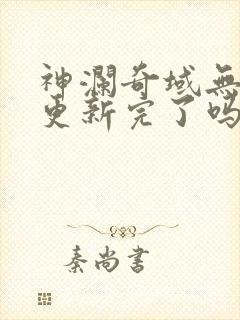 神瀾奇域無
更新完了吗
秦尚書